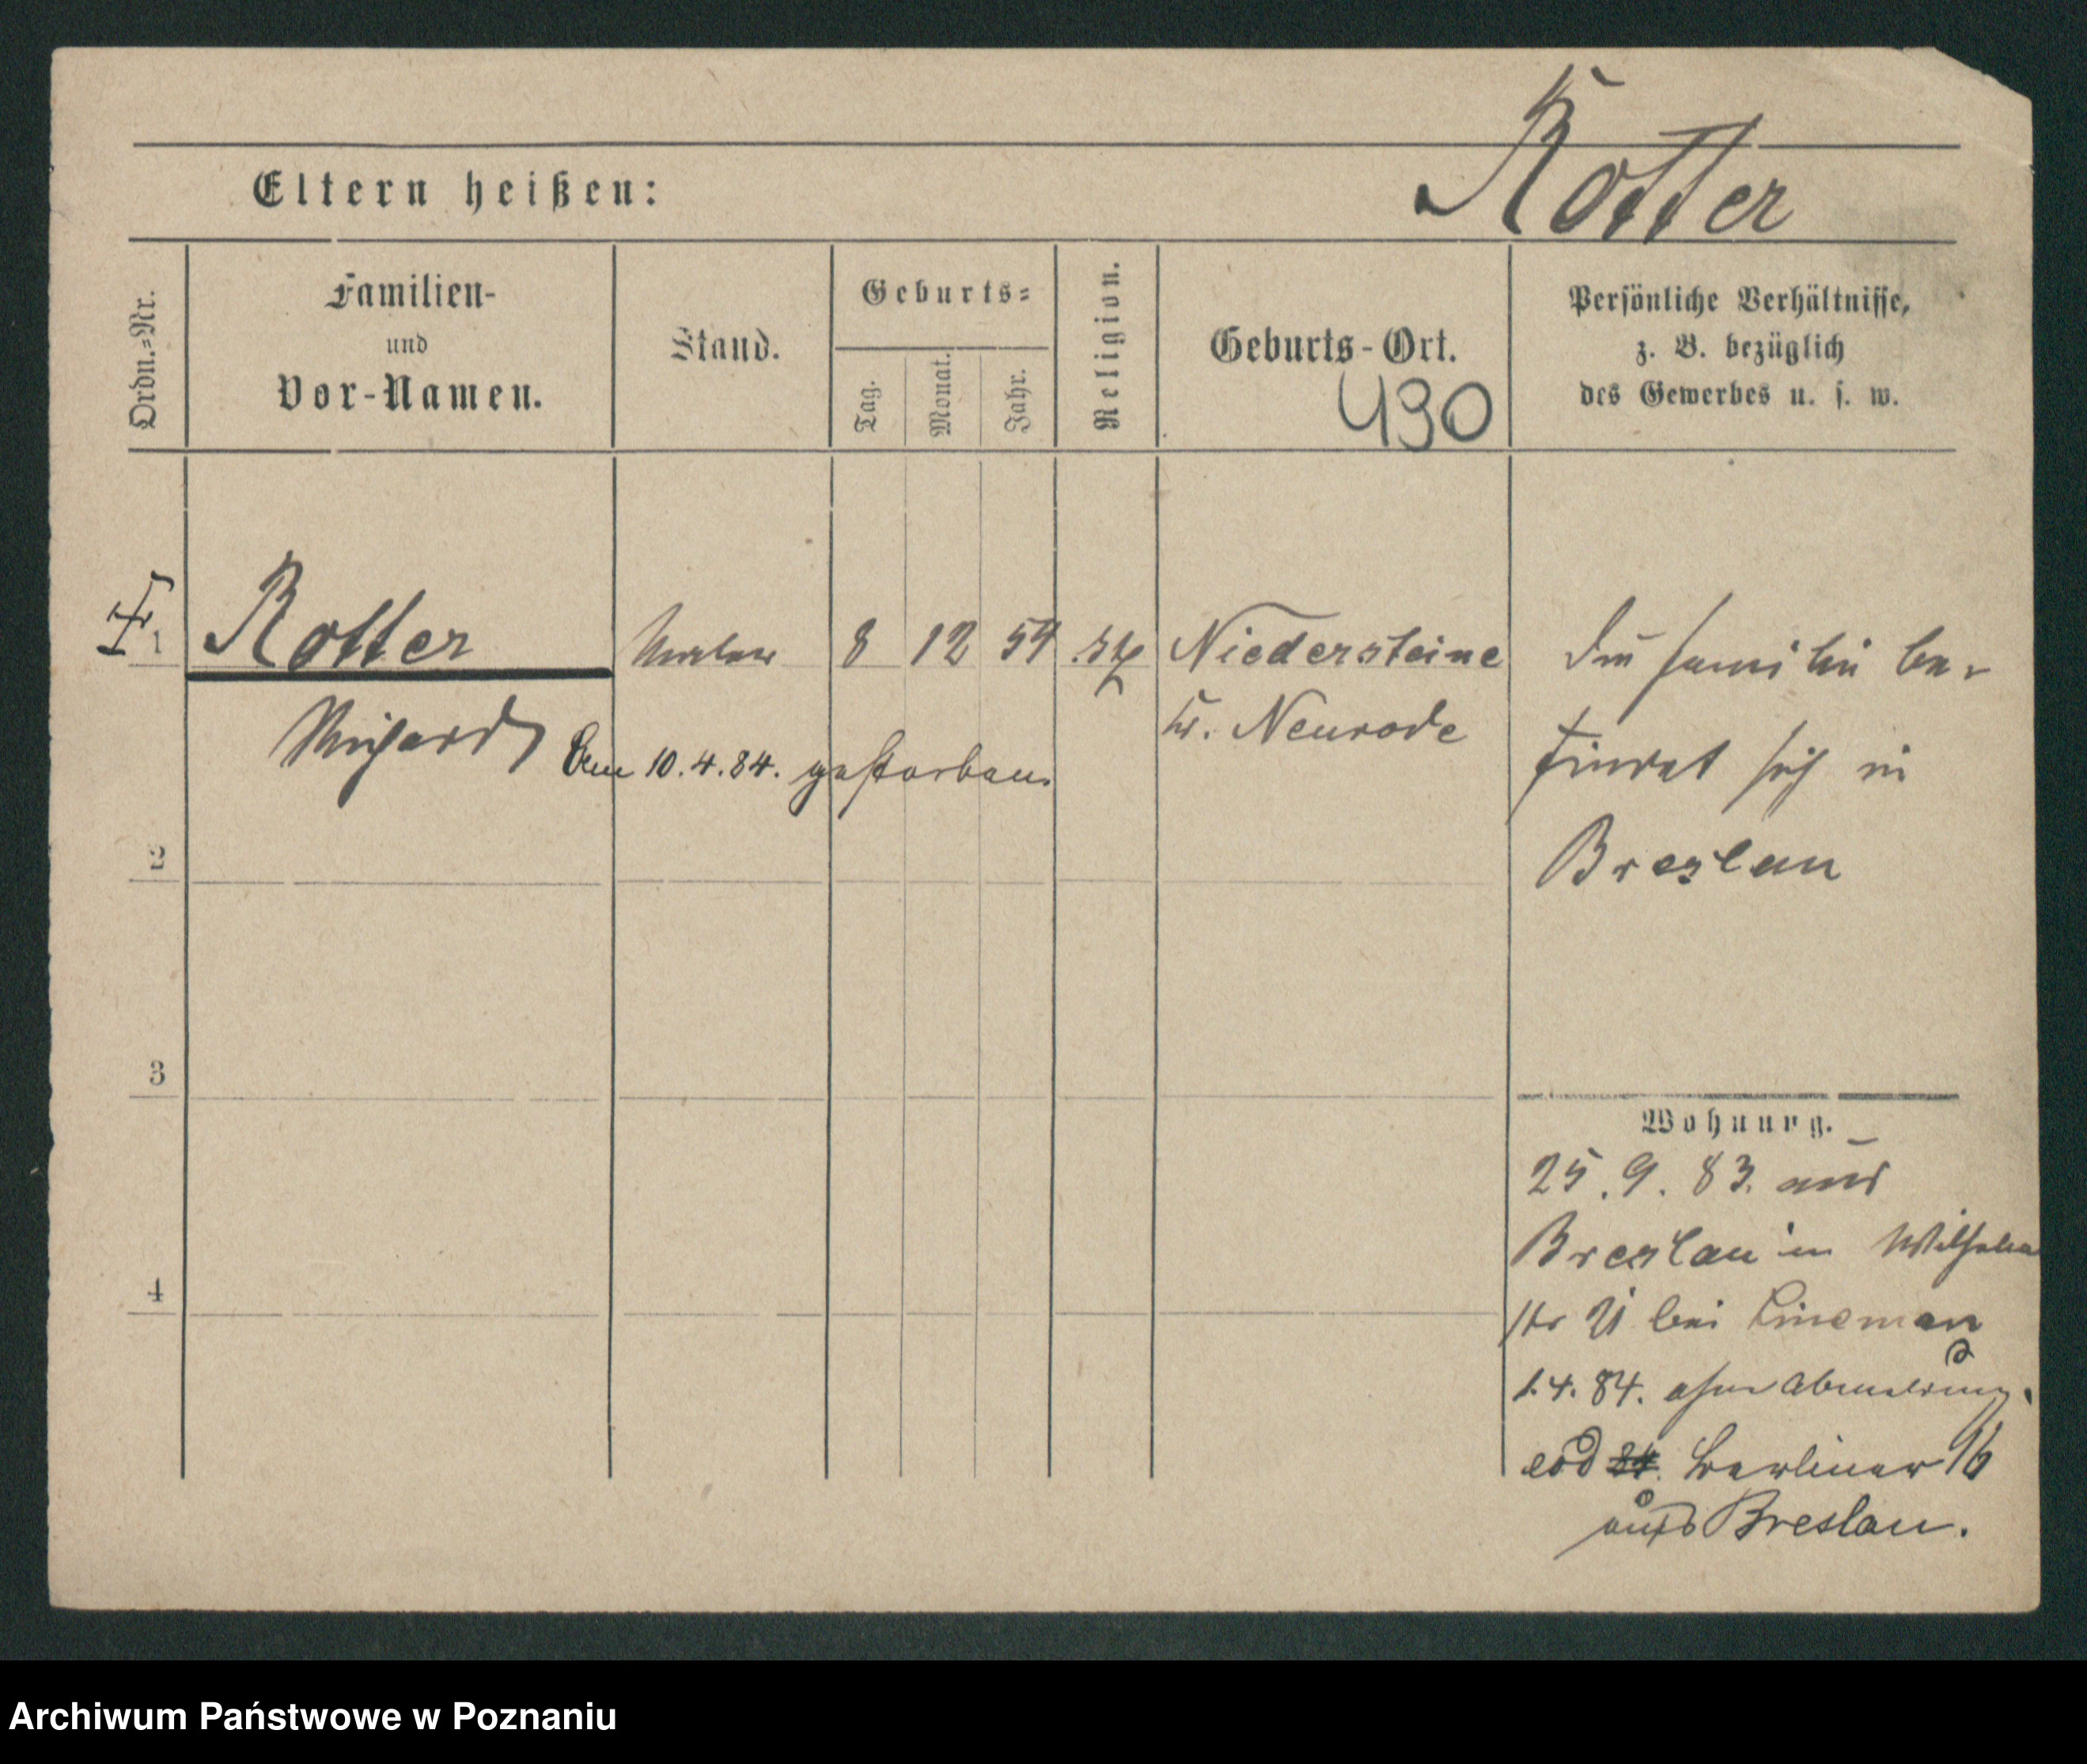 Rotter
Eltern heißen:
Ordn.=Nr.
Familien-
und
Vor-Namen.
Stand.
Geburts=
Tag.
Monat.
Jahr.
Religion.
Geburts-Ort.
430
Persönliche Verhältnisse,
z. B. bezüglich
des Gewerbes u. s. w.
1
Rotter
Maler
8
12
54
Niedersteine
Kr. Neurode
Richard
Am 10.4.84. gestorben.
Die Familie be-
findet sich in
Breslau
2
3
4
Wohnung.
25.9.83. aus
Breslau in Wilhelm
str 21 bei Lindeman
1.4.84. ohne Abmeldung.
eod 84. Berliner 16
aus Breslau.
Archiwum Państwowe w Poznaniu